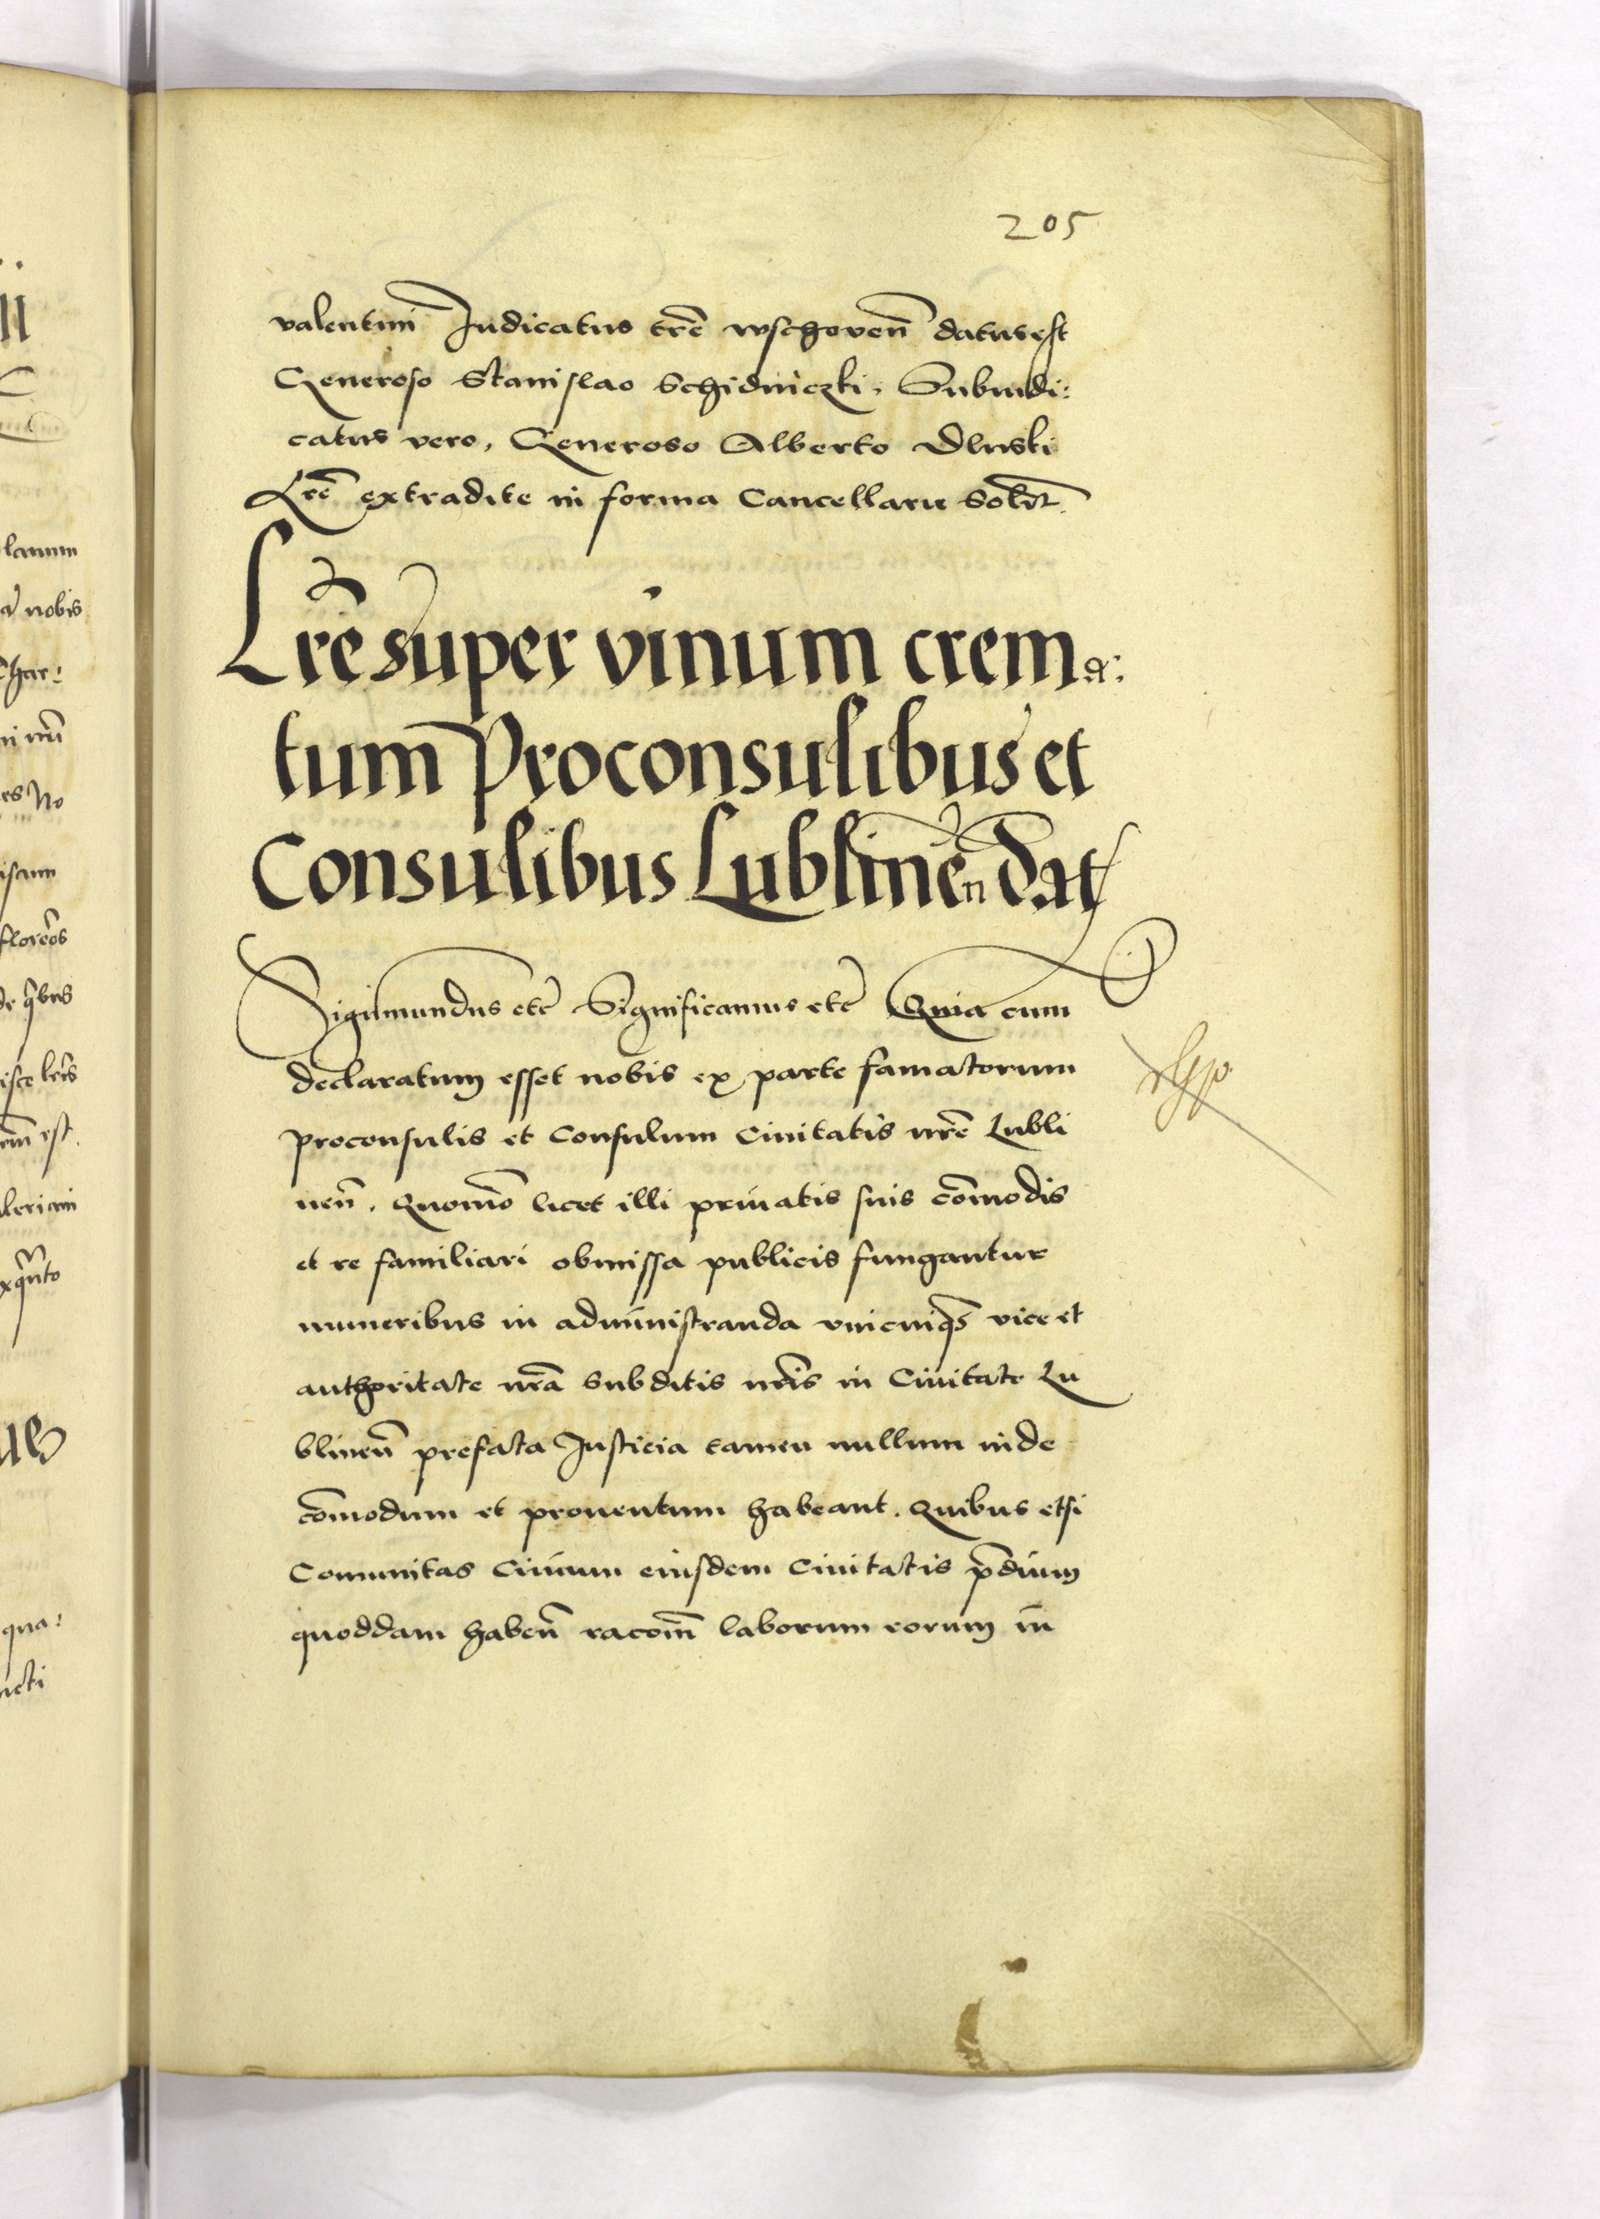 205
valentini Judicatus tr̄e wschoven̄ datus est
Generoso Stanislao Schidniczki. Subiudi:
catus vero, Generoso Alberto Dluski
Lr̄e extradite in forma Cancellarie
Lr̄e super vinum crema:
tum Proconsulibus et
Consulibus Lublinen̄ dat
Sigismundus etc̄ Significamus etc̄ Quia cum
declaratum esset nobis ex parte famatorum
proconsulis et Consulum Ciuitatis nr̄e Lubli
nen̄. Quomo͞ licet illi priuatis suis co͞modis
et re familiari obmissa publicis fungantur
muneribus in administranda vnicuiqȝ vice et
authoritate nr̄a subditis nr̄is in Ciuitate Lu
blinen̄ prefata Justicia tamen nullum inde
co͞modum et prouentum habeant. Quibus etsi
Comunitas Ciuium eiusdem Ciuitatis p̄dium
quoddam haben̄ racom̄ laborum eorum in
lanum
nobis
ni nr̄m
es No
isann
floren̄os
de q̄bus
isce lr̄is
est.
xq̄nto
qua:
ncti